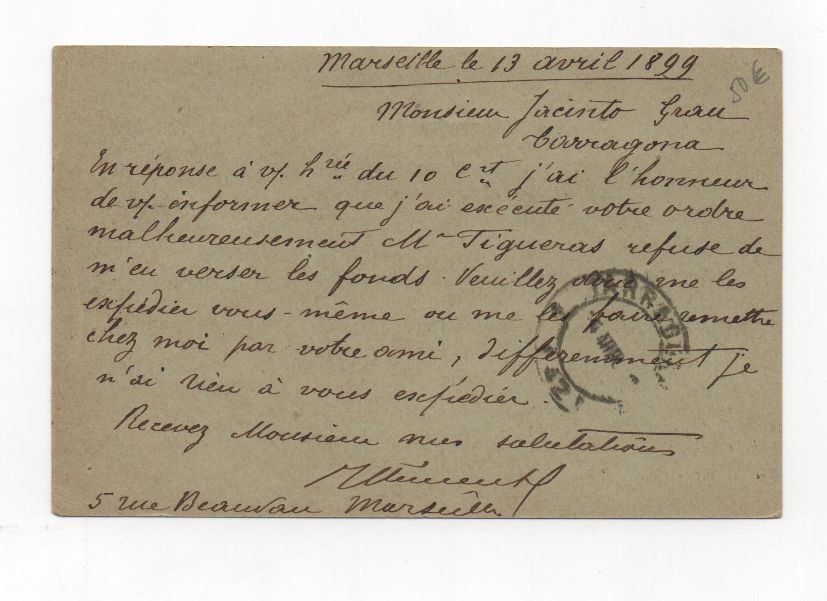 Marseille le 13 avril 1899
50 €
Monsieur Jacinto Grau
Tarragona
En réponse à v/. h rée du 10 Crt j'ai l'honneur
de v/. informer que j'ai exécuté votre ordre
malheureusement Mr Figueras refuse de
m'en verser les fonds. Veuillez donc me les
expédier vous-même ou me les faire remettre
chez moi par votre ami, differemment je
n'ai rien à vous expédier.
Recevez Monsieur mes salutations
5 rue Beauvau Marseille